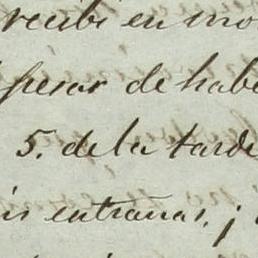 recibi en mo
pesar de habe
5. de la tarde
is entrañas, ¡